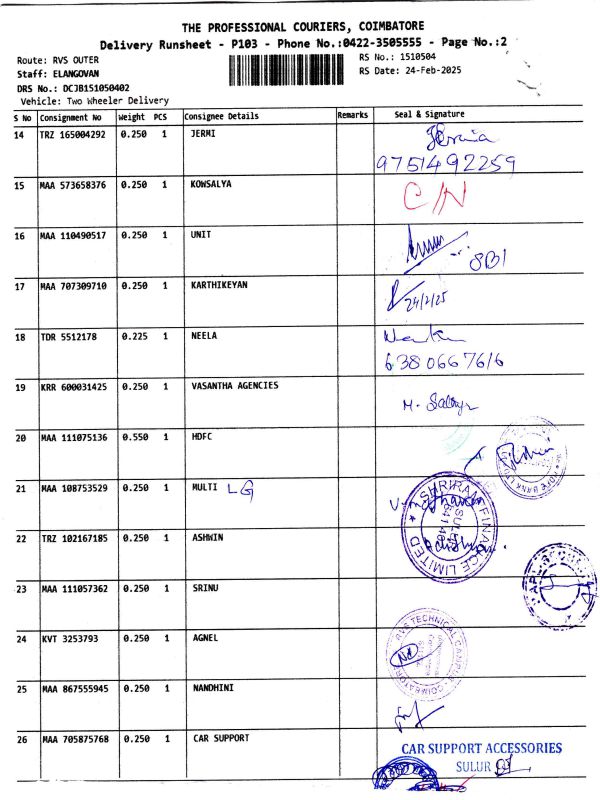 THE PROFESSIONAL COURIERS, COIMBATORE
Delivery Runsheet - P103 - Phone No.:0422-3505555 - Page No.:2
Route: RVS OUTER
RS No.: 1510504
Staff: ELANGOVAN
RS Date: 24-Feb-2025
DRS No.: DCJB151050402
Vehicle: Two Wheeler Delivery
S No Consignment No Weight PCS Consignee Details Remarks Seal & Signature
14 TRZ 165004292 0.250 1 JERMI
9751492259
15 MAA 573658376 0.250 1 KOWSALYA C/N
16 MAA 110490517 0.250 1 UNIT
SBI
17 MAA 707309710 0.250 1 KARTHIKEYAN
24/2/25
18 TDR 5512178 0.225 1 NEELA
6380667616
19 KRR 600031425 0.250 1 VASANTHA AGENCIES
M.
20 MAA 111075136 0.550 1 HDFC
21 MAA 108753529 0.250 1 MULTI LG
SHRIRAM FINANCE LIMITED
22 TRZ 102167185 0.250 1 ASHWIN
23 MAA 111057362 0.250 1 SRINU
24 KVT 3253793 0.250 1 AGNEL
RVS TECHNICAL CAMPUS COIMBATORE
25 MAA 867555945 0.250 1 NANDHINI
26 MAA 705875768 0.250 1 CAR SUPPORT
CAR SUPPORT ACCESSORIES
SULUR